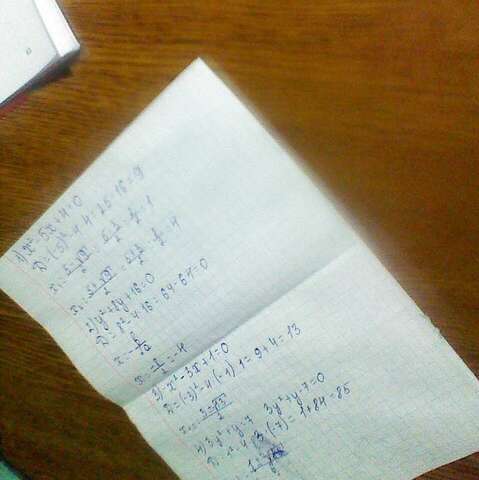 1) x² - 5x + 4 = 0
D = (-5)² - 4·4 = 25 - 16 = 9
x₁ = (5 - √9)/2 = (5 - 3)/2 = 2/2 = 1
x₂ = (5 + √9)/2 = (5 + 3)/2 = 8/2 = 4
2) y² + 8y + 16 = 0
D = 8² - 4·16 = 64 - 64 = 0
x = -b/2a
x = -8/2 = -4
3) -x² - 3x + 1 = 0
D = (-3)² - 4·(-1)·1 = 9 + 4 = 13
4) 3y² + y = 7 3y² + y - 7 = 0
D = 1² - 4·3·(-7) = 1 + 84 = 85